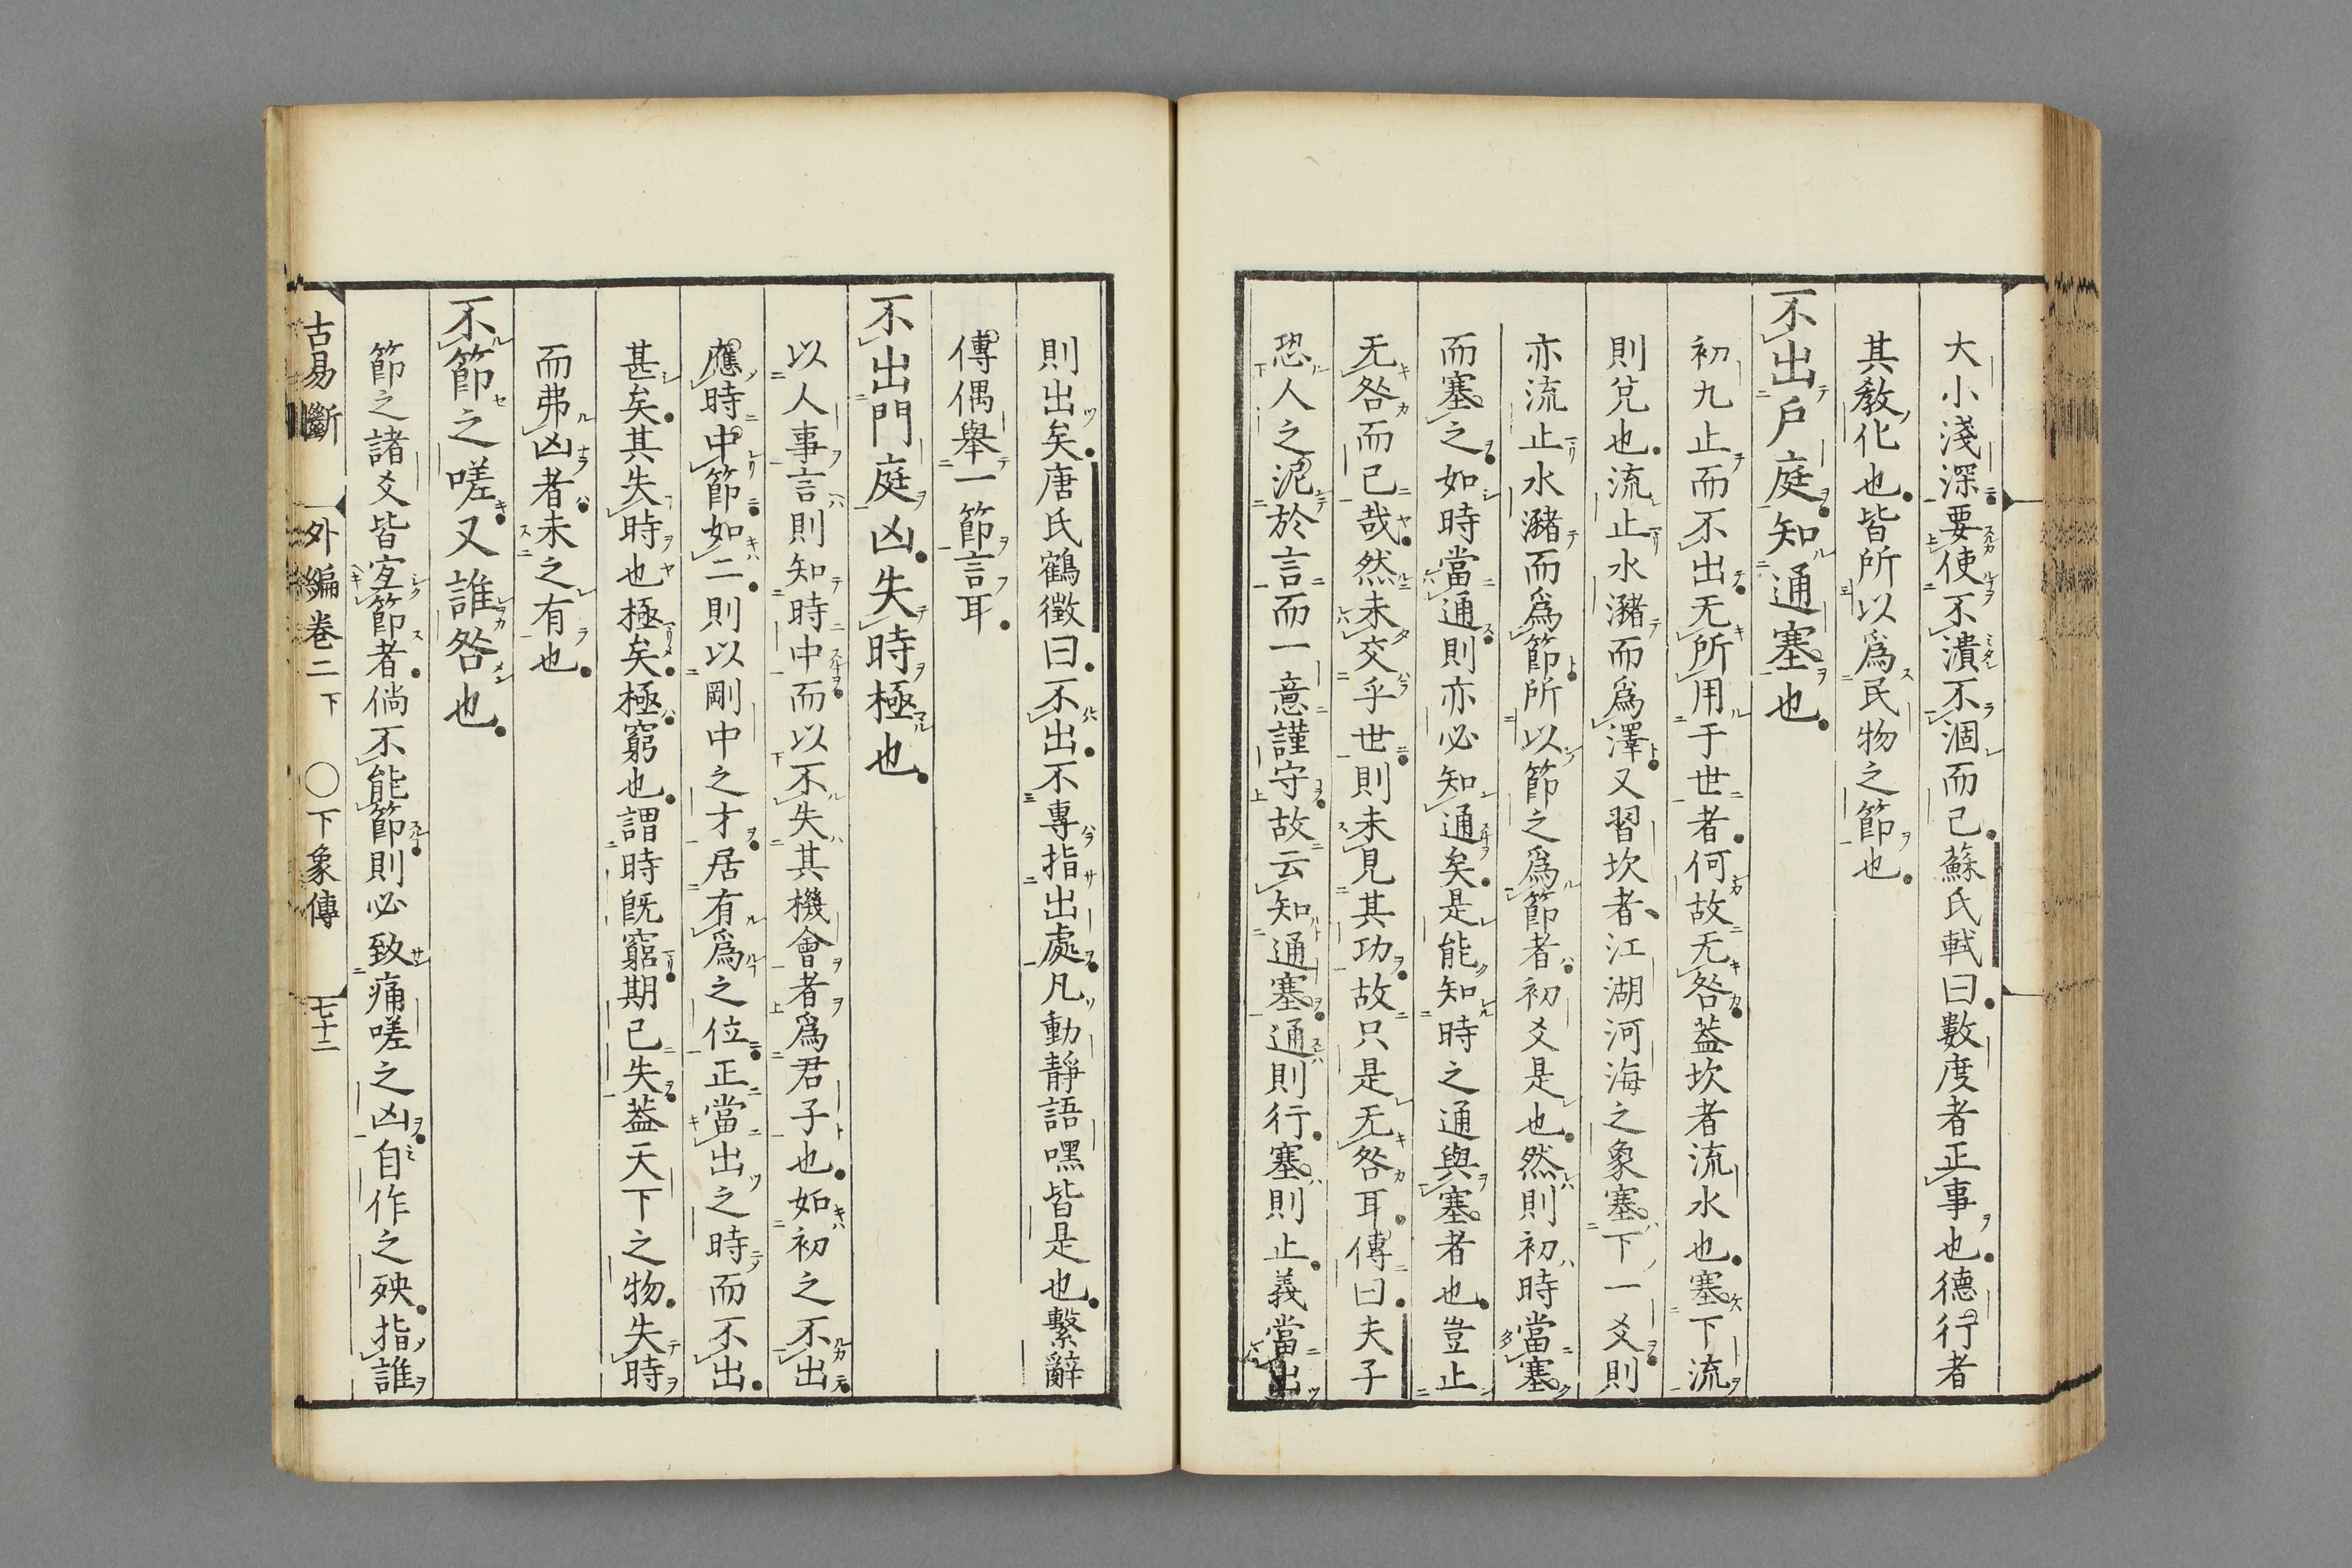 大小淺深要使不潰不涸而已蘇氏軾曰數度者正事也德行者
其敎化也皆所以爲民物之節也
不出戶庭知通塞也
初九止而不出无所用于世者何故无咎葢坎者流水也塞下流
則兌也流止水瀦而爲澤又習坎者江湖河海之象塞下一爻則
亦流止水瀦而爲節所以節之爲節者初爻是也然則初時當塞
而塞之如時當通則亦必知通矣是能知時之通與塞者也豈止
无咎而已哉然未交乎世則未見其功故只是无咎耳傳曰夫子
恐人之泥於言而一意謹守故云知通塞通則行塞則止義當出
則出矣唐氏鶴徵曰不出不專指出處凡動靜語嘿皆是也繫辭
傳偶舉一節言耳
不出門庭凶失時極也
以人事言則知時中而以不失其機會者爲君子也如初之不出
應時中節如二則以剛中之才居有爲之位正當出之時而不出
甚矣其失時也極矣極窮也謂時旣窮期已失葢天下之物失時
而弗凶者未之有也
不節之嗟又誰咎也
節之諸爻皆宐節者倘不能節則必致痛嗟之凶自作之殃指誰
古易斷 外編卷二下 ○下象傳 七十二